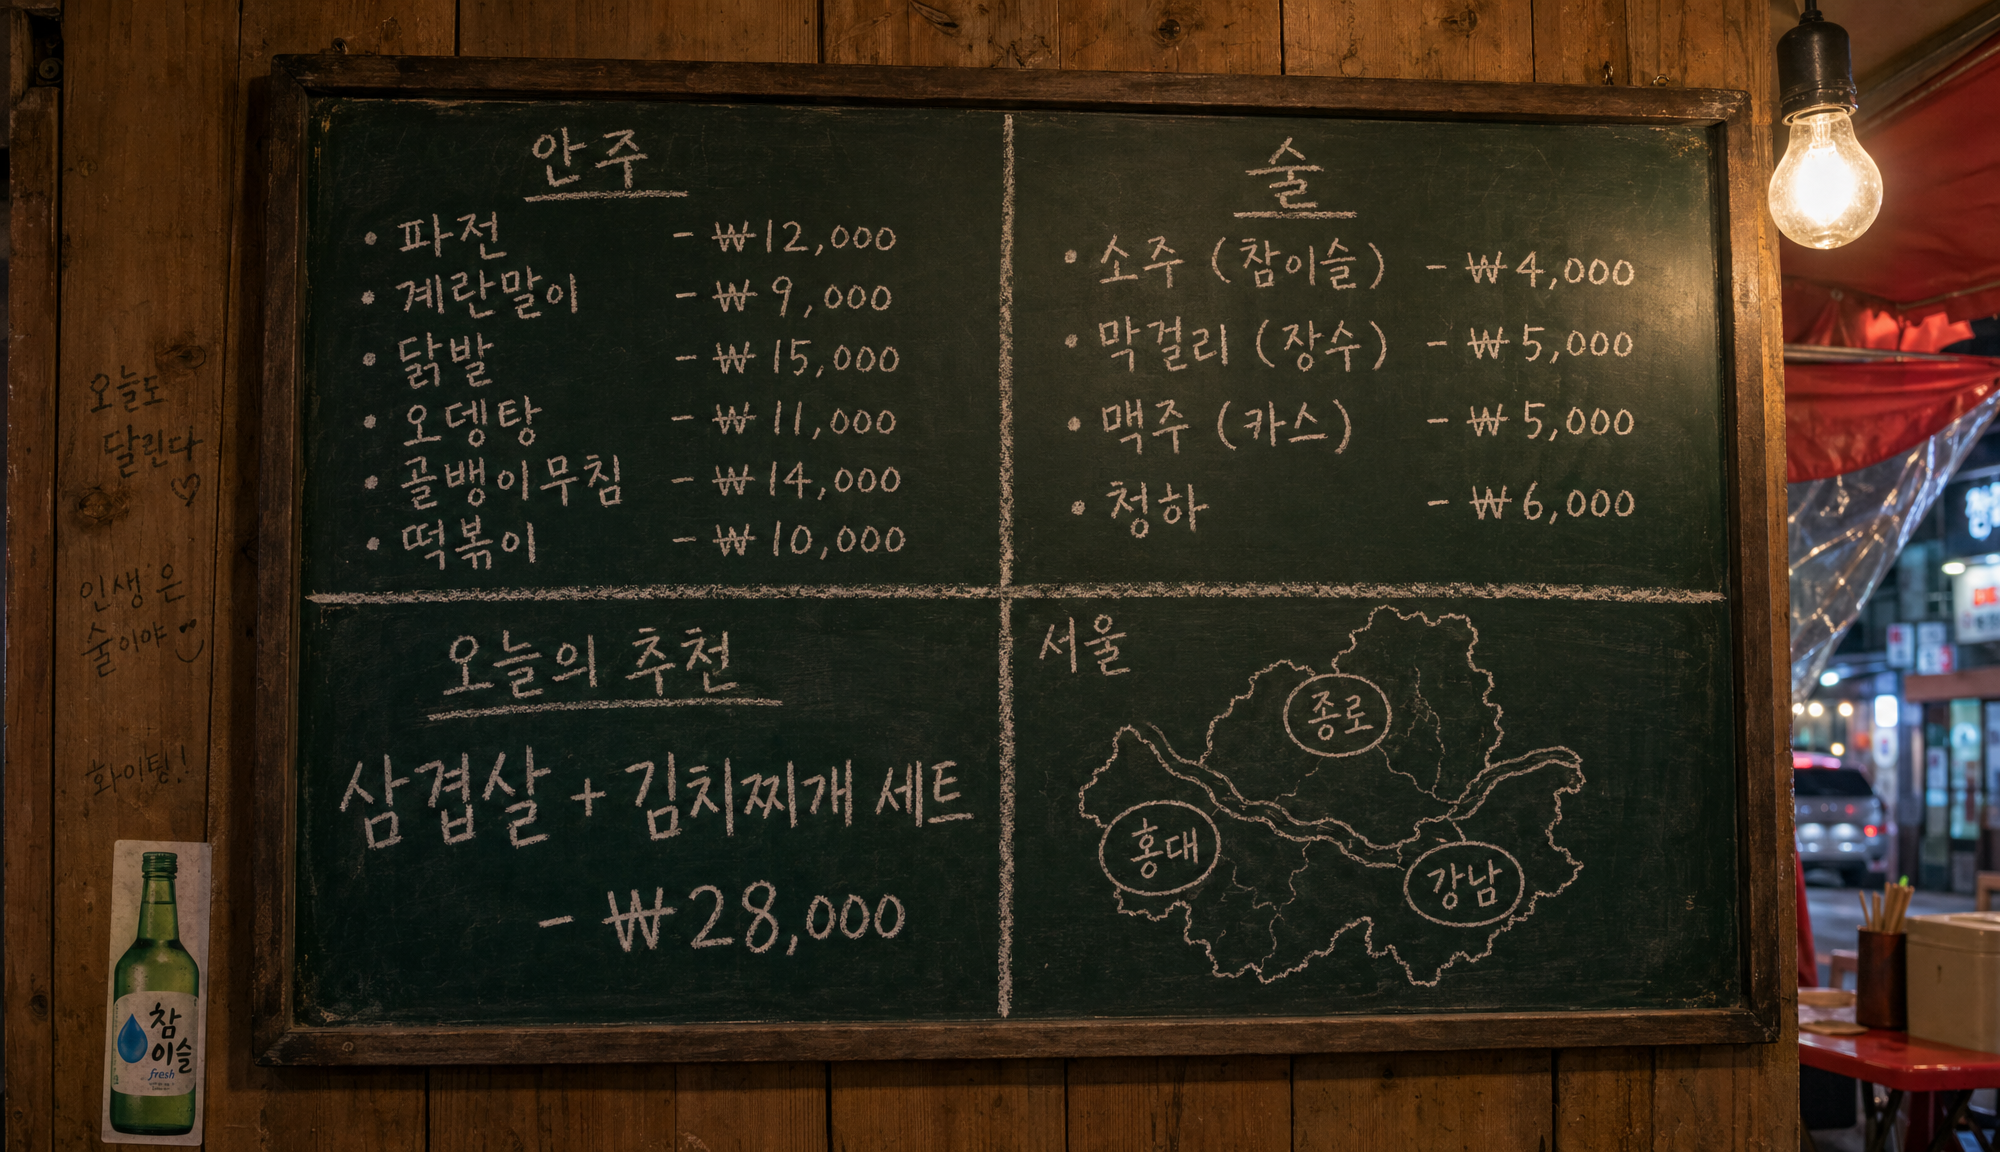 안주
• 파전 - ₩12,000
• 계란말이 - ₩9,000
• 닭발 - ₩15,000
• 오뎅탕 - ₩11,000
• 골뱅이무침 - ₩14,000
• 떡볶이 - ₩10,000
술
• 소주 (참이슬) - ₩4,000
• 막걸리 (장수) - ₩5,000
• 맥주 (카스) - ₩5,000
• 청하 - ₩6,000
오늘의 추천
삼겹살 + 김치찌개 세트
- ₩28,000
서울
종로
홍대
강남
오늘도
달린다
인생은
술이야
화이팅!
참
이슬
fresh